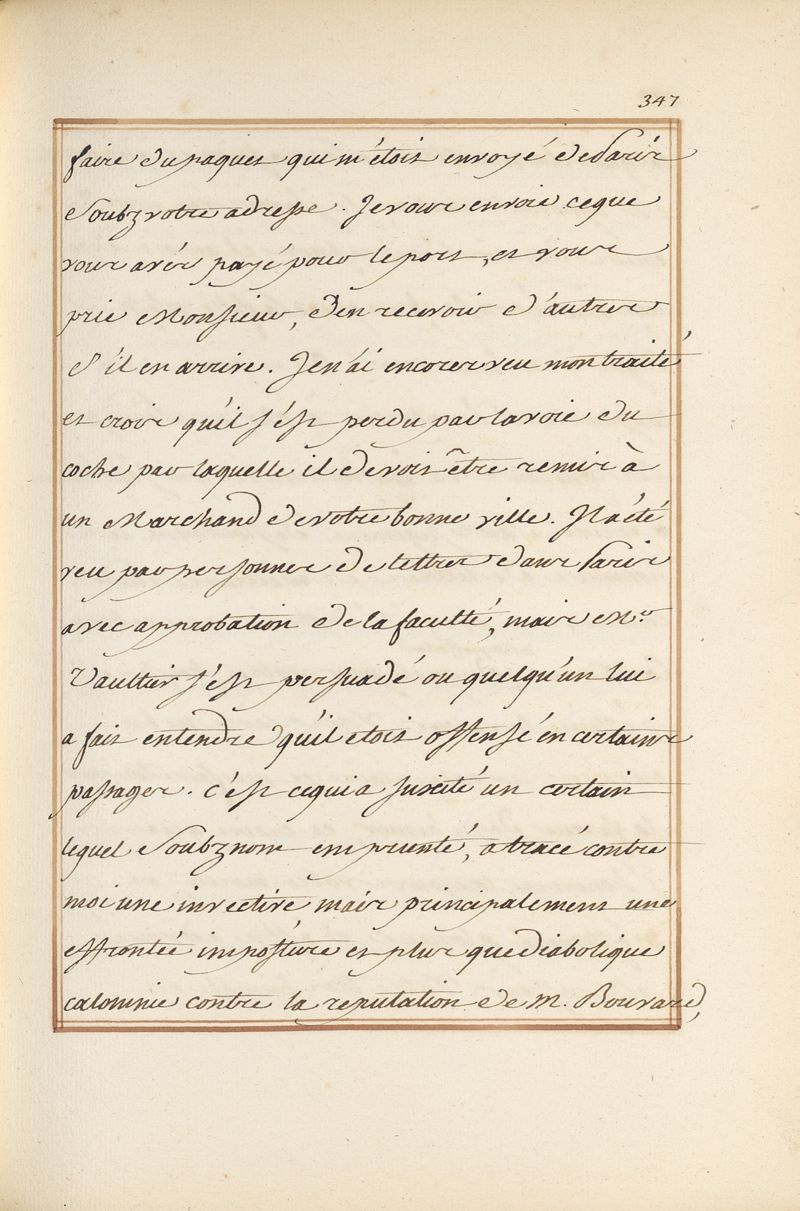 347
faire du paquet qui m'étoit envoyé de Paris
Soubz votre adresse. Je vous envoie ce que
vous avés payé pour le port, et vous
prie Monsieur, d'en recevoir d'autres
S'il en arrive. Je n'ai encores veu mon traité
et crois qu'il s'est perdu par la voie du
coche par laquelle il devoit être remis à
un Marchand de votre bonne ville. Il a été
veu par personnes de lettres dans Paris
avec approbation de la faculté, mais Mr.
Vaultier s'est persuadé ou quelqu'un lui
a fait entendre qu'il etoit offensé en certains
passages. c'est ce qui a suscité un certain
lequel Soubz nom emprunté, a tracé contre
moi une invective mais principalement une
effrontée imposture et plus que diabolique
calomnie contre la reputation de M. Bouvard,